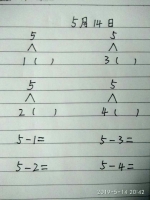 5月14日
5 5
1 ( ) 3 ( )
5 5
2 ( ) 4 ( )
5-1= 5-3=
5-2= 5-4=
2019-5-14 20:42